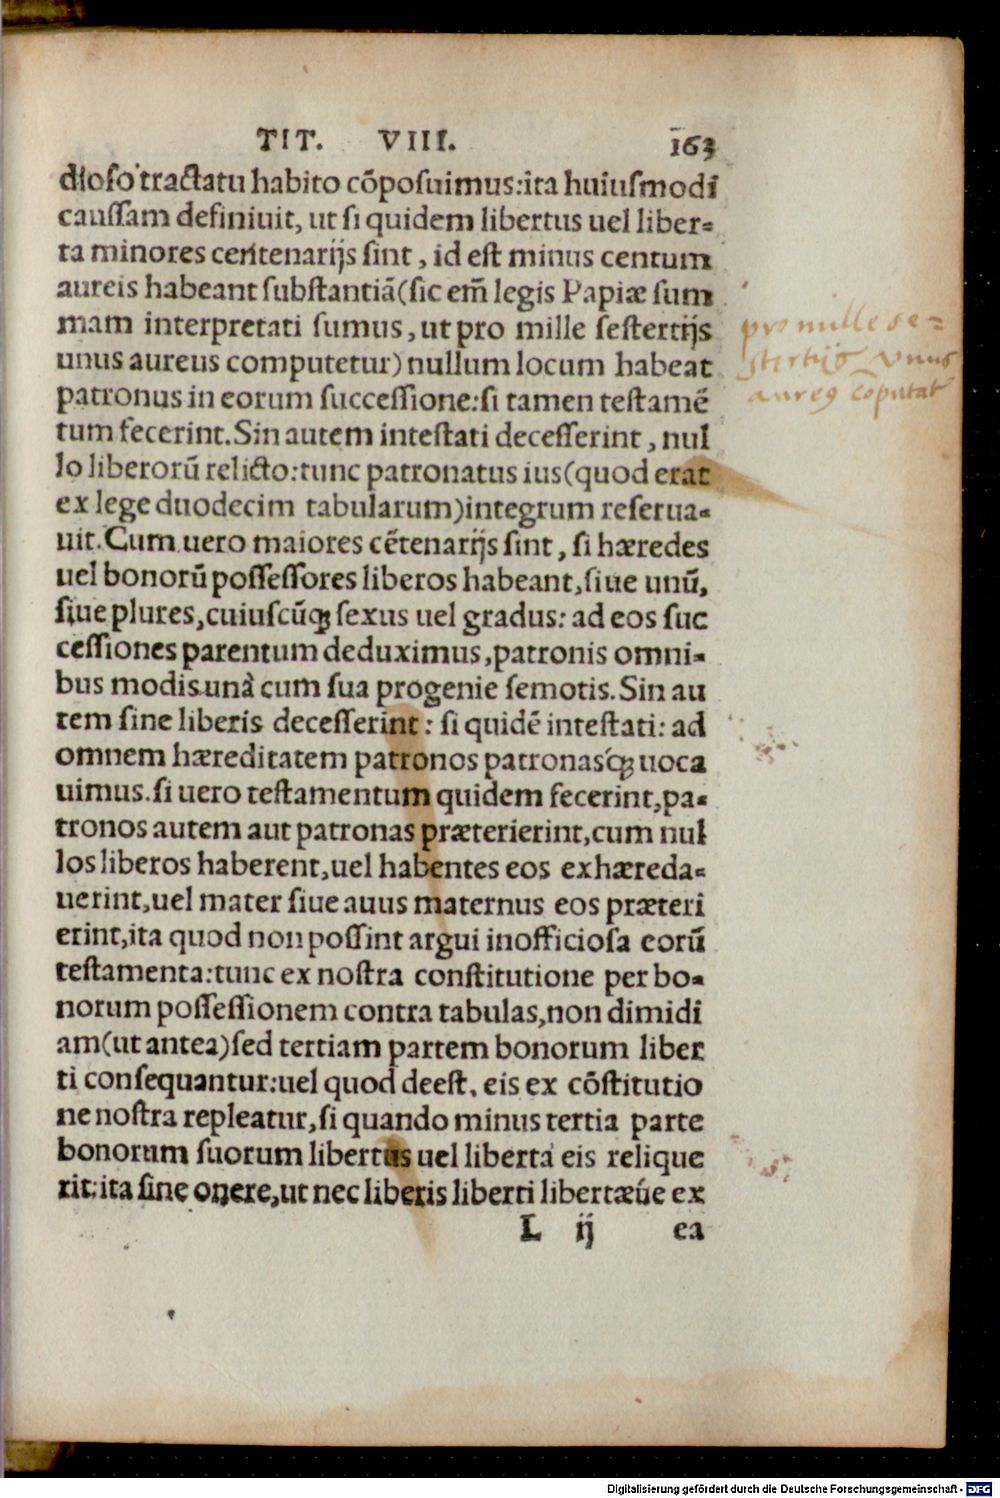 TIT. VIII. 163
dioso tractatu habito cōposuimus: ita huiusmodi
caussam definiuit, ut si quidem libertus uel liber-
ta minores centenarijs sint, id est minus centum
aureis habeant substantiā (sic em̄ legis Papiæ sum
mam interpretati sumus, ut pro mille sestertijs
unus aureus computetur) nullum locum habeat
patronus in eorum successione: si tamen testamē
tum fecerint. Sin autem intestati decesserint, nul
lo liberorū relicto: tunc patronatus ius (quod erat
ex lege duodecim tabularum) integrum reserua-
uit. Cum uero maiores cētenarijs sint, si hæredes
uel bonorū possessores liberos habeant, siue unū,
siue plures, cuiuscūq; sexus uel gradus: ad eos suc
cessiones parentum deduximus, patronis omni-
bus modis unà cum sua progenie semotis. Sin au
tem sine liberis decesserint: si quidē intestati: ad
omnem hæreditatem patronos patronasq́; uoca
uimus. si uero testamentum quidem fecerint, pa-
tronos autem aut patronas præterierint, cum nul
los liberos haberent, uel habentes eos exhæreda-
uerint, uel mater siue auus maternus eos præteri
erint, ita quod non possint argui inofficiosa eorū
testamenta: tunc ex nostra constitutione per bo-
norum possessionem contra tabulas, non dimidi
am (ut antea) sed tertiam partem bonorum liber
ti consequantur: uel quod deest, eis ex cōstitutio
ne nostra repleatur, si quando minus tertia parte
bonorum suorum libertus uel liberta eis relique
rit: ita sine onere, ut nec liberis liberti libertæúe ex
L ij ea
pro mille se=
stertijs vnus
aureꝰ cōputat̄
Digitalisierung gefördert durch die Deutsche Forschungsgemeinschaft - DFG